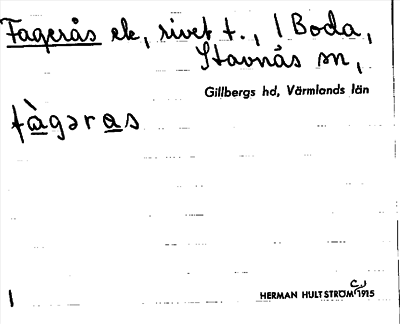 Fagerås ek, rivet t., 1 Boda,
Stavnäs sn,
Gillbergs hd, Värmlands län
fàgəras
1
HERMAN HULTSTRÖM 1915